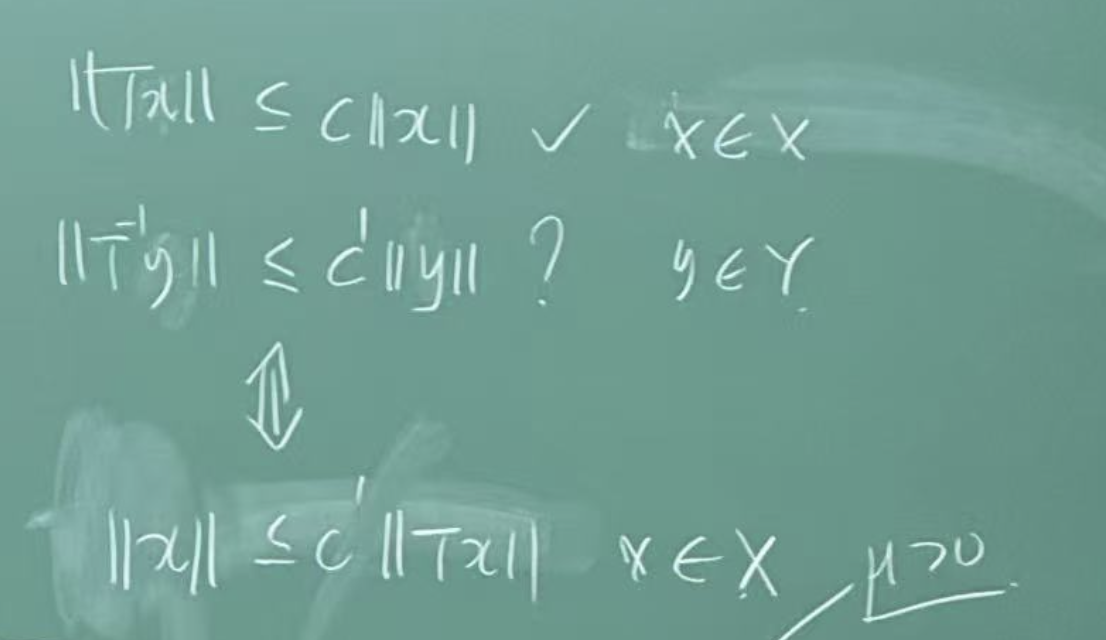 ‖Tx‖ ≤ C‖x‖ ✓ x ∈ X
‖T⁻¹y‖ ≤ C'‖y‖ ? y ∈ Y
⇕
‖x‖ ≤ C'‖Tx‖ x ∈ X μ>0